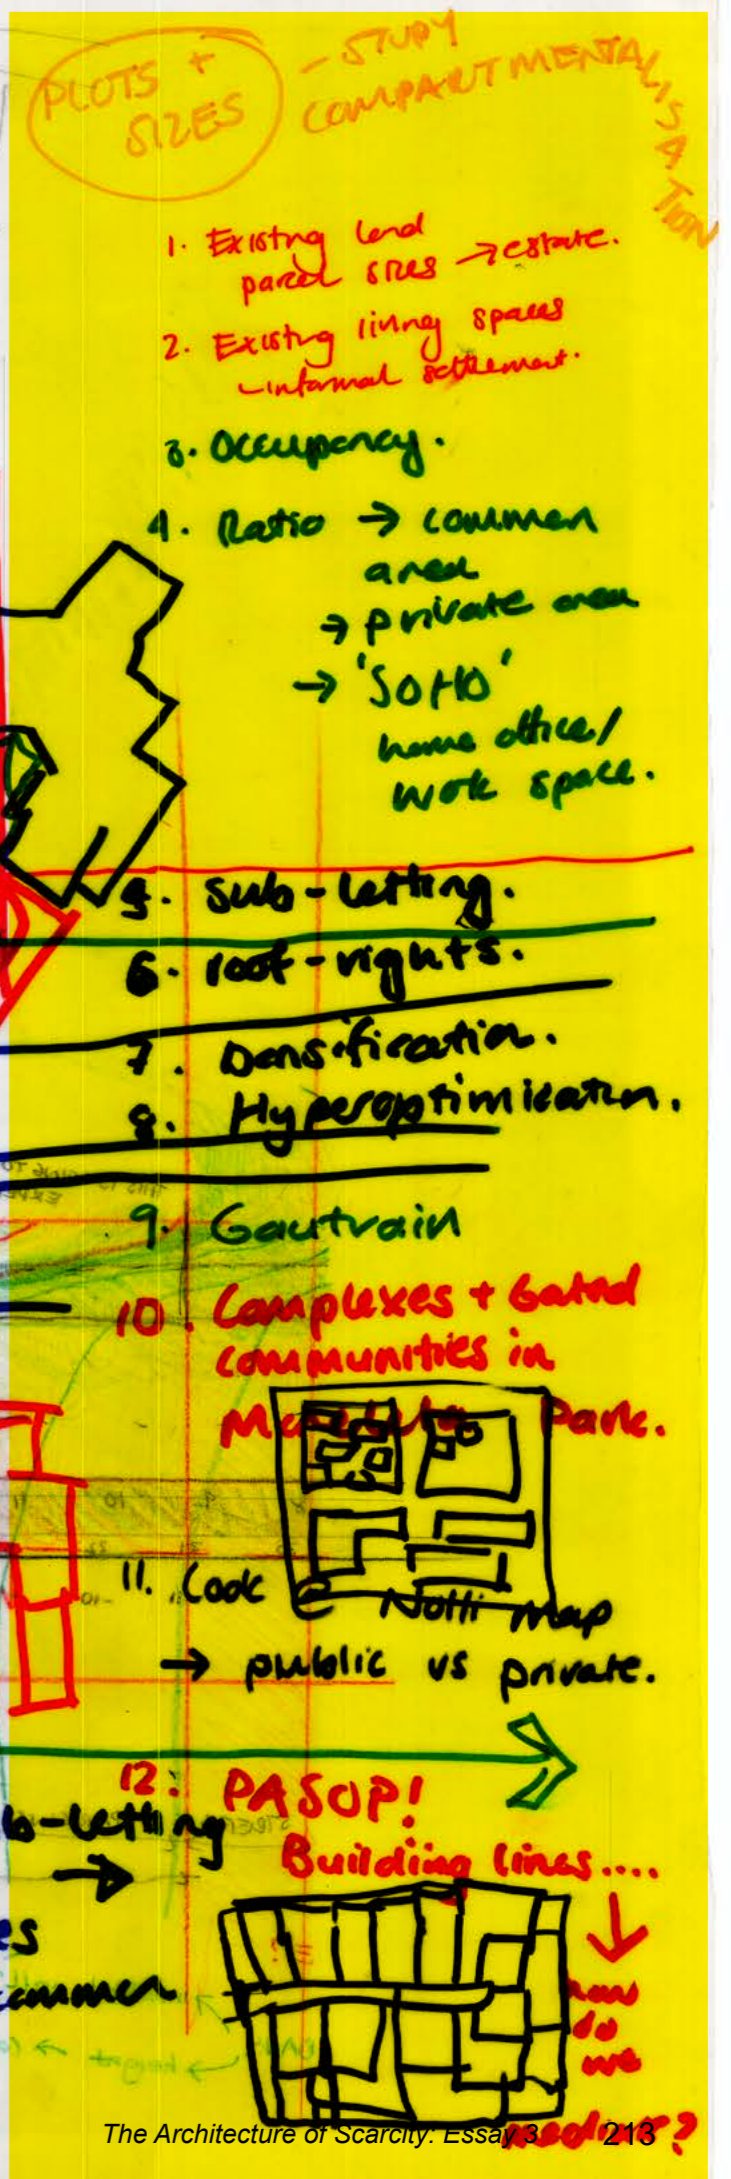 PLOTS +
SIZES
- STUDY
COMPARTMENTALISATION
1. Existing land
parcel sizes → estate.
2. Existing living spaces
informal settlement.
3. Occupancy.
4. Ratio → common
area
→ private area
→ 'SOHO'
home office/
work space.
5. Sub-letting.
6. roof-rights.
7. Densification.
8. Hyperoptimisation.
9. Gautrain
10. Complexes + Gated
communities in
Park.
11. Look @ Nolli map
→ public vs private.
12. PASOP!
b-letting
Building lines....
→
es
common
how
do
we
mediate?
height
The Architecture of Scarcity: Essay 3 213